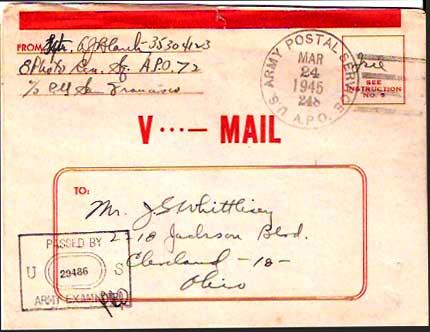 FROM Sgt. 35304123
8 Photo Rcn. Sq. A.P.O. 72
c/o P.M. San Francisco
U.S. ARMY POSTAL SERVICE
MAR
24
1945
248
A.P.O.
SEE
INSTRUCTION
NO. 5
V···— MAIL
TO:
Mr. J G Whittlesey
2218 Jackson Blvd.
Cleveland -18-
Ohio
PASSED BY
U 29486 S
ARMY EXAMINER